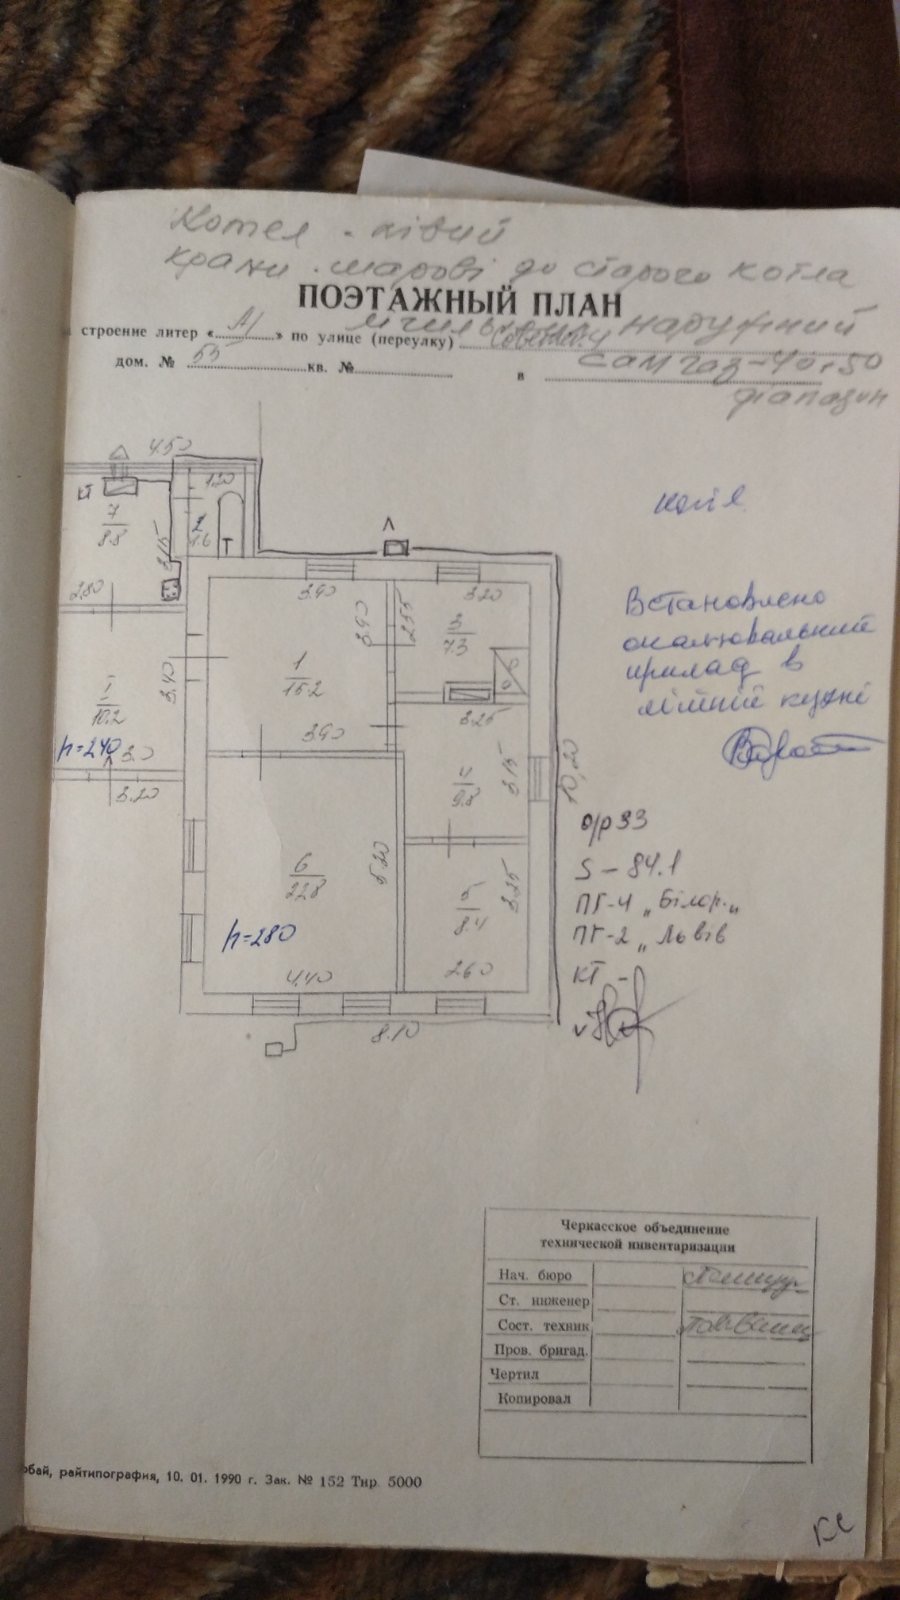 Котел - лівий
крани шарові до старого котла
ПОЭТАЖНЫЙ ПЛАН
лічильник наружний
строение литер «А1» по улице (переулку)
самгаз
дом. № 55 кв. № в
діапазон
4.50
КТ
1.20
7
8.8
2
1.6
Т
3.15
2.80
Коля
3.90
3.20
3.90
2.55
1
15.2
3
7.3
Встановлено
опалювальний
прилад в
літній кухні
3.40
I
10.2
h=240
3.0
3.20
3.90
3.25
4
9.8
3.15
10,20
о/р 33
S - 84.1
ПГ-4 „Білор.„
ПГ-2 „Львів
КТ -
6
22.8
5.20
h=280
5
8.4
3.25
4.40
2.60
8.10
Черкасское объединение
технической инвентаризации
Нач. бюро
Ст. инженер
Сост. техник
Пров. бригад.
Чертил
Копировал
обай, райтипография, 10. 01. 1990 г. Зак. № 152 Тир. 5000